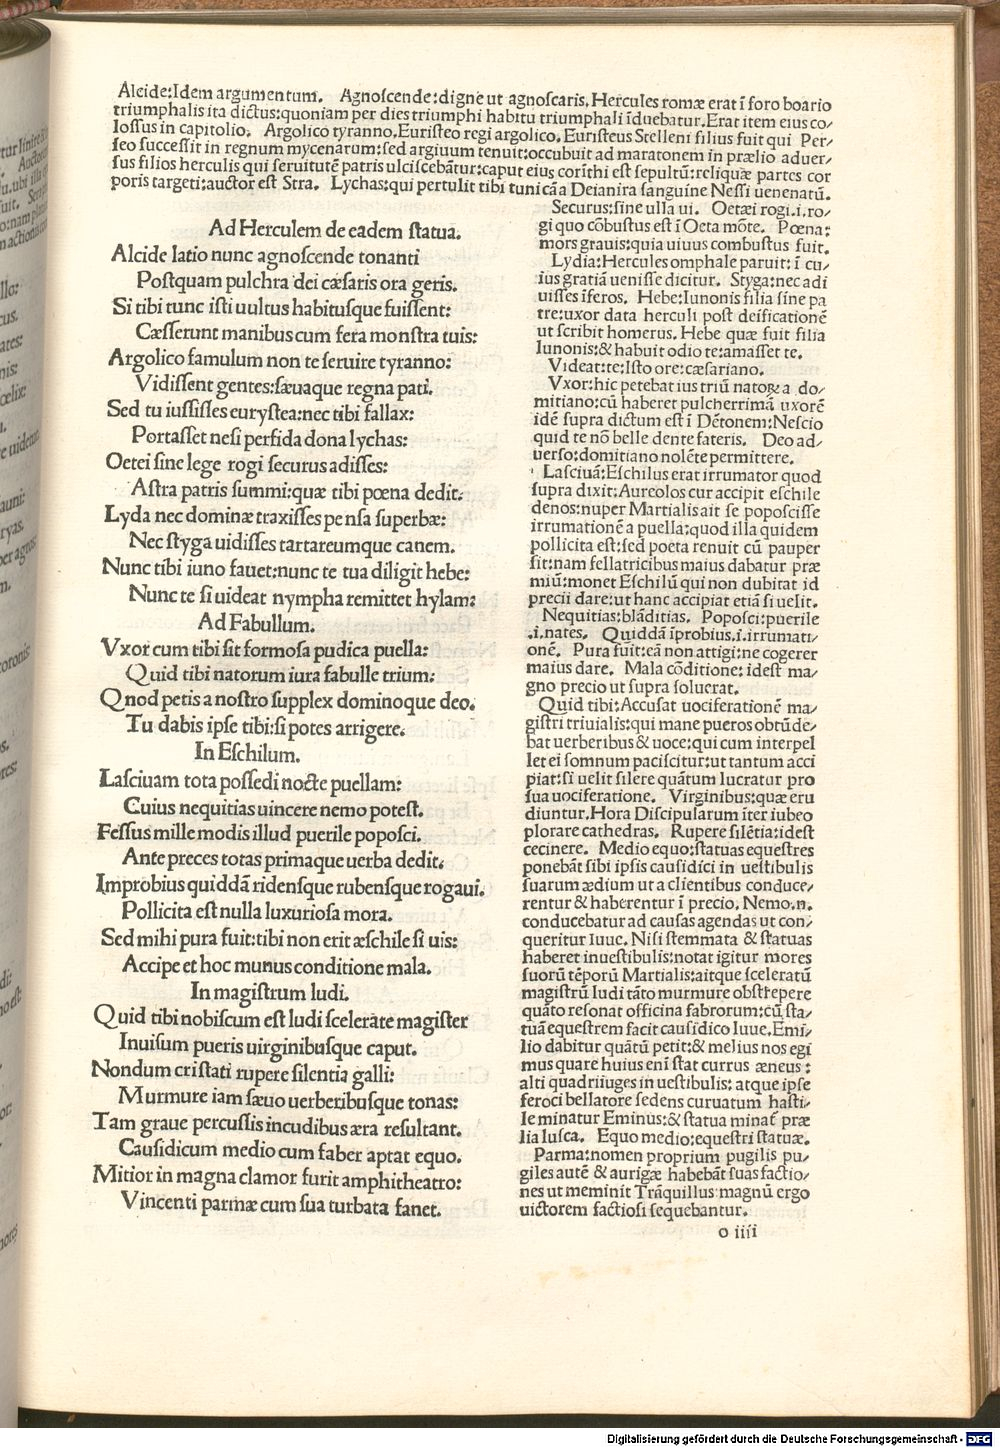 Alcide:Idem argumentum. Agnoſcende:digne ut agnoſcaris, Hercules romæ erat ī foro boario
triumphalis ita dictus:quoniam per dies triumphi habitu triumphali īduebatur. Erat item eius co⸗
loſſus in capitolio. Argolico tyranno, Euriſteo regi argolico. Euriſteus Stelleni filius fuit qui Per⸗
ſeo ſucceſſit in regnum mycenarum:ſed argiuum tenuit:occubuit ad maratonem in prælio aduer⸗
ſus filios herculis qui ſeruitutē patris ulciſcebātur:caput eius corīthi eſt ſepultū:reliquæ partes cor
poris targeti:auctor eſt Stra. Lychas:qui pertulit tibi tunicā a Deianira ſanguine Neſſi uenenatū.
Ad Herculem de eadem ſtatua.
Alcide latio nunc agnoſcende tonanti
Poſtquam pulchra dei cæſaris ora geris.
Si tibi tunc iſti uultus habituſque fuiſſent:
Cæſſerunt manibus cum fera monſtra tuis:
Argolico famulum non te ſeruire tyranno:
Vidiſſent gentes:ſæuaque regna pati.
Sed tu iuſſiſſes euryſtea:nec tibi fallax:
Portaſſet neſi perfida dona lychas:
Oetei ſine lege rogi ſecurus adiſſes:
Aſtra patris ſummi:quæ tibi pœna dedit:
Lyda nec dominæ traxiſſes penſa ſuperbæ:
Nec ſtyga uidiſſes tartareumque canem.
Nunc tibi iuno fauet:nunc te tua diligit hebe:
Nunc te ſi uideat nympha remittet hylam:
Ad Fabullum.
Vxor cum tibi ſit formoſa pudica puella:
Quid tibi natorum iura fabulle trium:
Qnod petis a noſtro ſupplex dominoque deo.
Tu dabis ipſe tibi:ſi potes arrigere.
In Eſchilum.
Laſciuam tota poſſedi nocte puellam:
Cuius nequitias uincere nemo poteſt.
Feſſus mille modis illud puerile popoſci.
Ante preces totas primaque uerba dedit.
Improbius quiddā ridenſque rubenſque rogaui.
Pollicita eſt nulla luxurioſa mora.
Sed mihi pura fuit:tibi non erit æſchile ſi uis:
Accipe et hoc munus conditione mala.
In magiſtrum ludi.
Quid tibi nobiſcum eſt ludi ſcelerate magiſter
Inuiſum pueris uirginibuſque caput.
Nondum criſtati rupere ſilentia galli:
Murmure iam ſæuo uerberibuſque tonas:
Tam graue percuſſis incudibus æra reſultant.
Cauſidicum medio cum faber aptat equo.
Mitior in magna clamor furit amphitheatro:
Vincenti parmæ cum ſua turbata fanet.
Securus:ſine ulla ui. Oetæi rogi.i.ro⸗
gi quo cōbuſtus eſt ī Oeta mōte. Pœna:
mors grauis:quia uiuus combuſtus fuit.
Lydia:Hercules omphale paruit: ī cu⸗
ius gratiā ueniſſe dicitur. Styga:nec adi
uiſſes īferos. Hebe:Iunonis filia ſine pa
tre:uxor data herculi poſt deificationē
ut ſcribit homerus. Hebe quæ fuit filia
Iunonis:& habuit odio te:amaſſet te.
Videat:te:Iſto ore:cæſariano.
Vxor:hic petebat ius triū natoꝝ a do⸗
mitiano:cū haberet pulcherrimā uxorē
idē ſupra dictum eſt ī Dētonem:Neſcio
quid te nō belle dente fateris. Deo ad⸗
uerſo:domitiano nolēte permittere.
Laſciuā:Eſchilus erat irrumator quod
ſupra dixit:Aureolos cur accipit eſchile
denos:nuper Martialis ait ſe popoſciſſe
irrumationē a puella:quod illa quidem
pollicita eſt:ſed poeta renuit cū pauper
ſit:nam fellatricibus maius dabatur præ
miū:monet Eſchilū qui non dubitat id
precii dare:ut hanc accipiat etiā ſi uelit.
Nequitias:blāditias. Popoſci:puerile
.i.nates. Quiddā īprobius.i.irrumati⸗
onē. Pura fuit:eā non attigi:ne cogerer
maius dare. Mala cōditione: ideſt ma⸗
gno precio ut ſupra ſoluerat.
Quid tibi:Accuſat uociferationē ma⸗
giſtri triuialis:qui mane pueros obtūde⸗
bat uerberibus & uoce:qui cum interpel
let ei ſomnum paciſcitur:ut tantum acci
piat:ſi uelit ſilere quātum lucratur pro
ſua uociferatione. Virginibus:quæ eru
diuntur. Hora Diſcipularum īter iubeo
plorare cathedras. Rupere ſilētia:ideſt
cecinere. Medio equo:ſtatuas equeſtres
ponebāt ſibi ipſis cauſidici in ueſtibulis
ſuarum ædium ut a clientibus conduce⸗
rentur & haberentur ī precio. Nemo.n.
conducebatur ad cauſas agendas ut con⸗
queritur Iuue. Niſi ſtemmata & ſtatuas
haberet inueſtibulis:notat igitur mores
ſuorū tēporū Martialis:aitque ſceleratū
magiſtrū ludi tāto murmure obſtrepere
quāto reſonat officina fabrorum:cū ſta⸗
tuā equeſtrem facit cauſidico Iuue. Emi⸗
lio dabitur quātū petit:& melius nos egi
mus quare huius enī ſtat currus æneus :
alti quadriiuges in ueſtibulis: atque ipſe
feroci bellatore ſedens curuatum haſti⸗
le minatur Eminus:& ſtatua minat̄ præ
lia luſca. Equo medio:equeſtri ſtatuæ.
Parma:nomen proprium pugilis pu⸗
giles autē & aurigæ habebāt ſuas factio⸗
nes ut meminit Trāquillus magnū ergo
uictorem factioſi ſequebantur.
o iiii
Digitalisierung gefördert durch die Deutsche Forschungsgemeinschaft - DFG